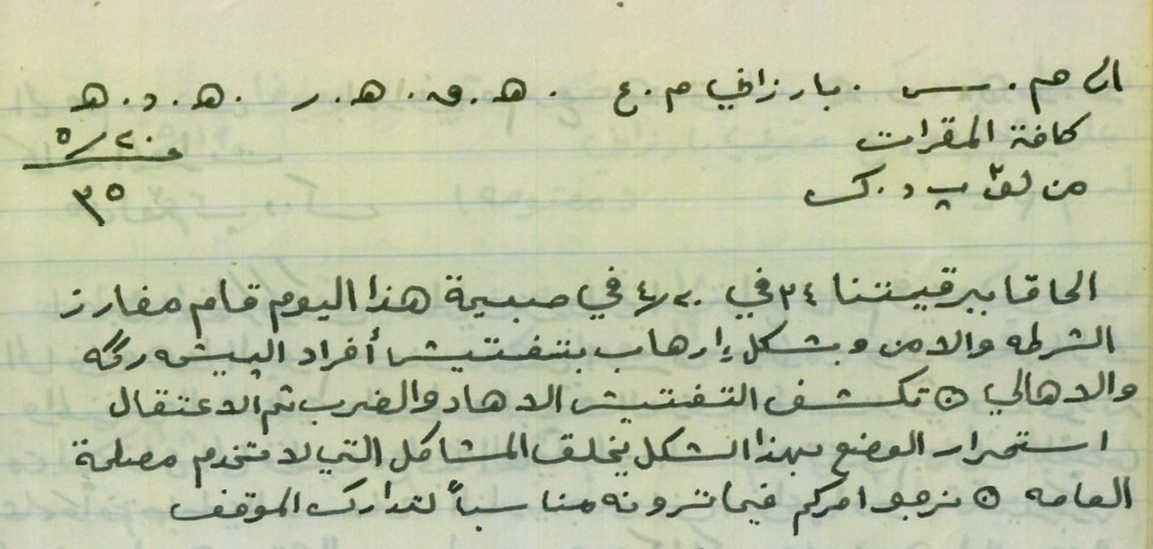 الى م.س. بارزاني م.ع . ه.ق.ه.ر .ه.د.ه
كافة المقرات
٢٠/٥
من لق ب د.ك
٣٥
الحاقا ببرقيتنا ٣٤ في ٤/٢٠ في صبيحة هذا اليوم قام مفارز
الشرطه والامن وبشكل إرهاب بتفتيش أفراد الپيشمه رگه
والاهالي ⊙ تكشف التفتيش الاهاد والضرب ثم الاعتقال
استمرار الوضع بهذا الشكل يخلق المشاكل التي لا تخدم مصلحة
العامه ⊙ نرجو امركم فيما ترونه مناسباً لتدارك الموقف